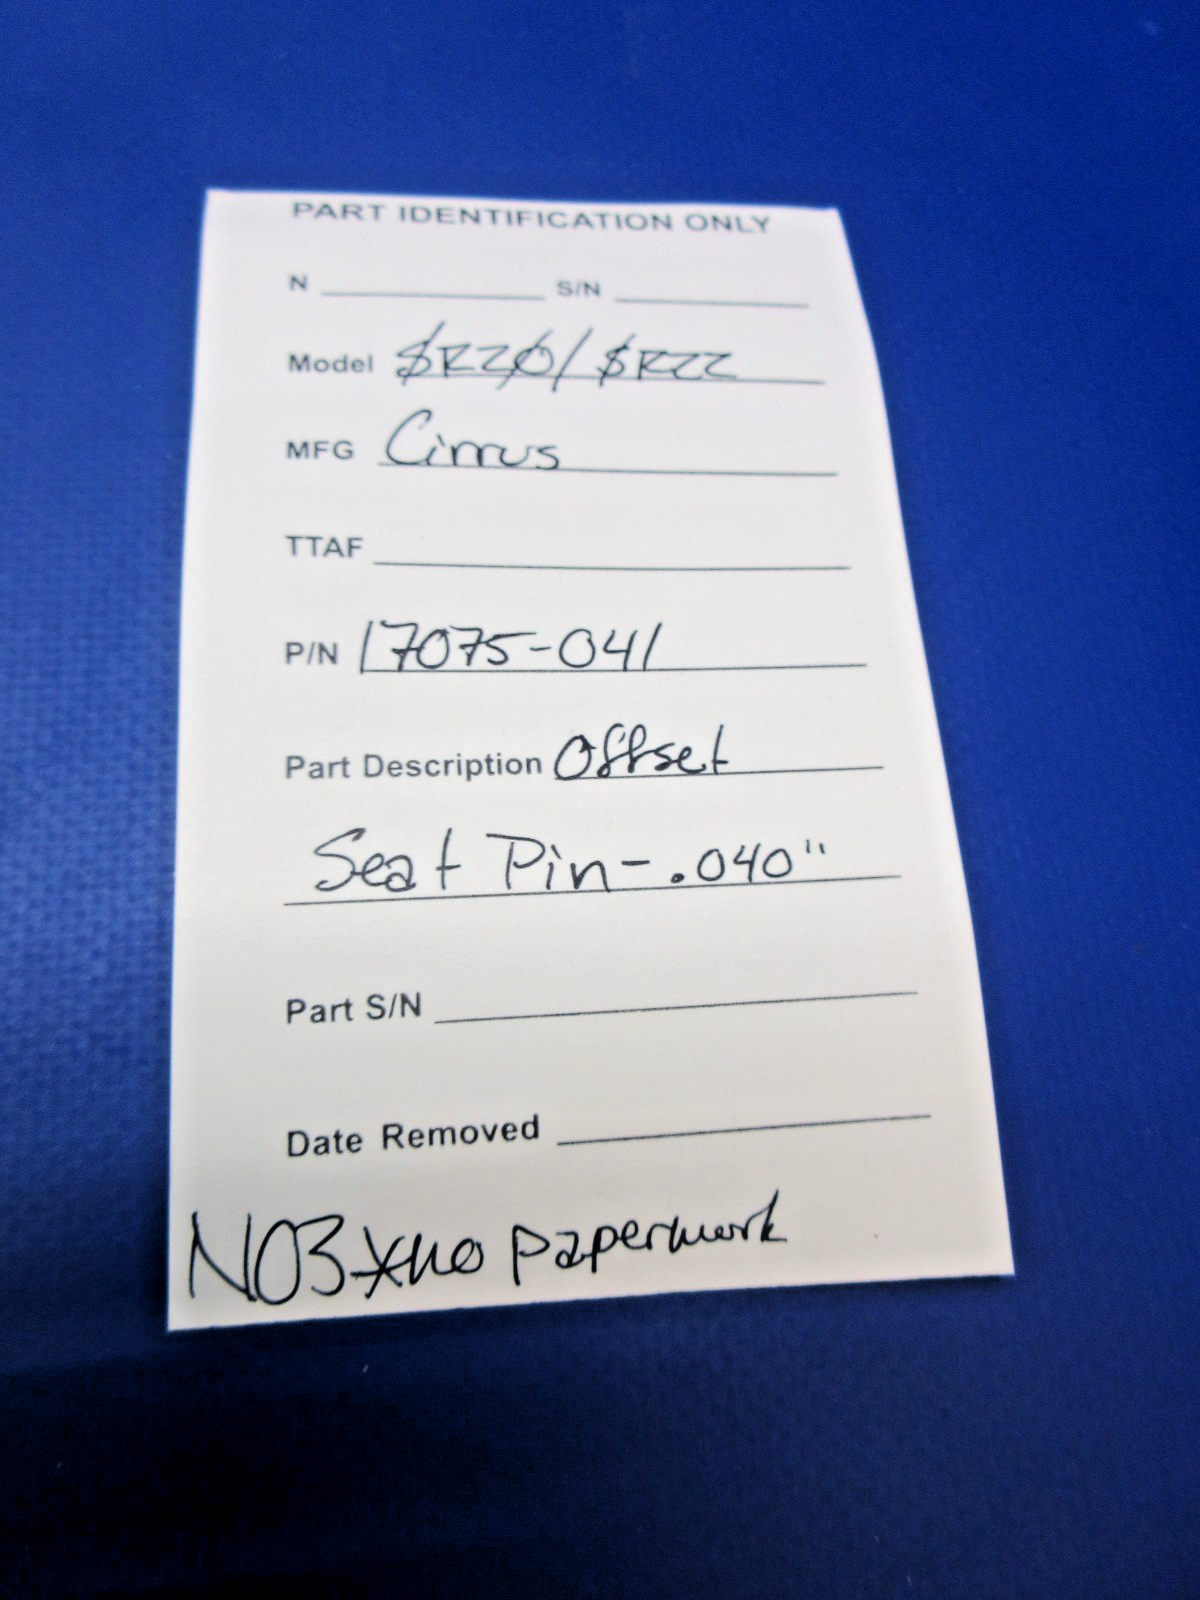 PART IDENTIFICATION ONLY
N S/N
Model SR20/SR22
MFG Cirrus
TTAF
P/N 17075-041
Part Description Offset
Seat Pin-.040"
Part S/N
Date Removed
NOS *no paperwork